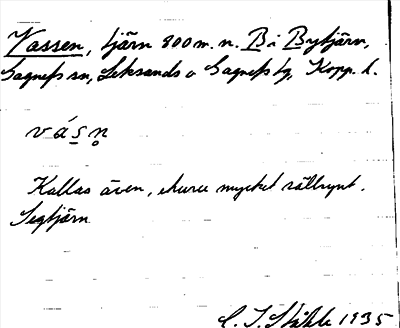 Vassen, tjärn 800 m. n. B i Bytjärn,
Gagnefs sn, Leksands o Gagnefs tg, Kopp. l.
v á s n
Kallas även, ehuru mycket sällsynt.
Segtjärn
C. I. Ståhle 1935